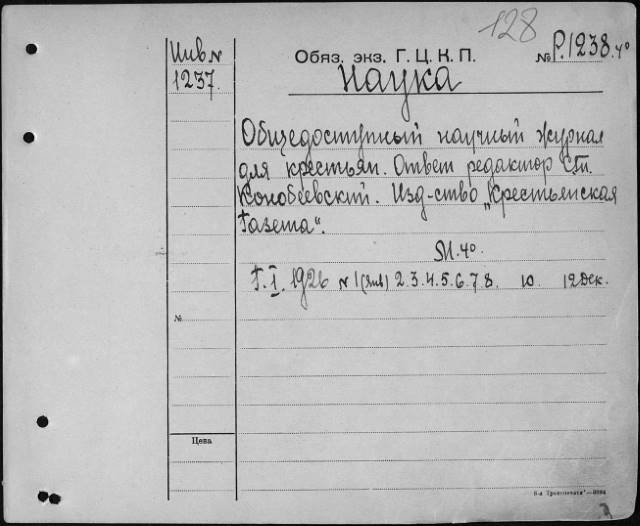 128
Инв №
1237.
Обяз. экз. Г. Ц. К. П.
№ Р.1238.4°
Наука
Общедоступный научный журнал
для крестьян. Ответ редактор Ст.
Конобеевский. Изд-ство „Крестьянская
Газета“.
М. 4°.
Г. I. 1926 № 1 (Янв) 2.3.4.5.6.7.8. 10. 12 Дек.
№
Цена